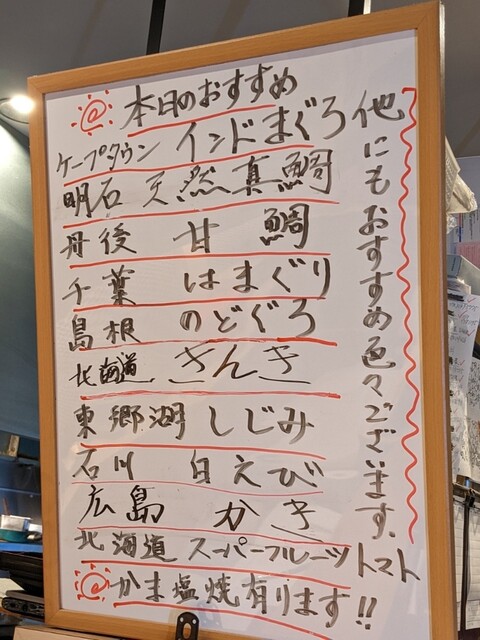 本日のおすすめ
ケープタウン インドまぐろ
明石 天然真鯛
丹後 甘鯛
千葉 はまぐり
島根 のどぐろ
北海道 きんき
東郷湖 しじみ
石川 白えび
広島 かき
北海道 スーパーフルーツトマト
かま塩焼有ります!!
他にもおすすめ色々ございます.